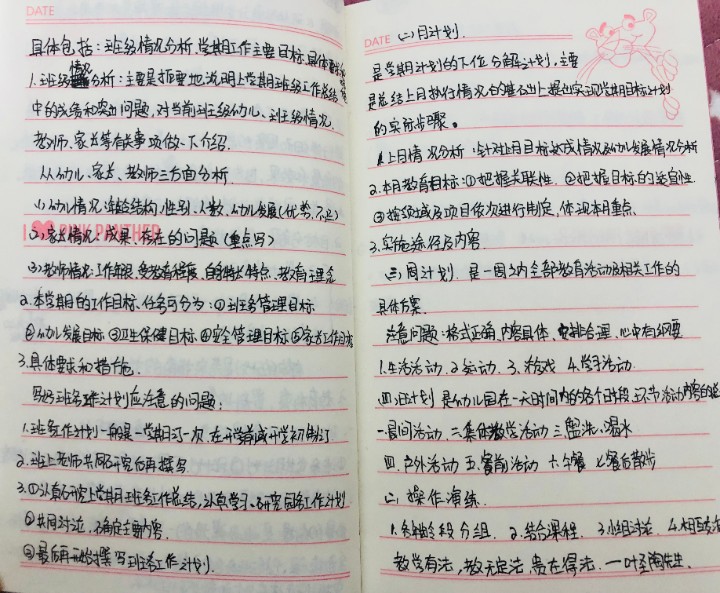 DATE
具体包括：班级情况分析、学期工作主要目标、具体要求和
1.班级情况分析：主要是扼要地说明上学期班级工作总结
中的成绩和突出问题，对当前班级幼儿、班级情况、
教师、家长等有关事项做一下介绍.
从幼儿、家长、教师三方面分析.
(1)幼儿情况:年龄结构,性别,人数,幼儿发展(优势,不足)
I PINK PANTHER
(2)家长情况：成果、存在的问题(重点写)
(3)教师情况:工作年限、受教育程度、自身特长特点、教育理念
2.本学期的工作目标、任务可分为：①班务管理目标
②幼儿发展目标③卫生保健目标④安全管理目标⑤家长工作目标
3.具体要求和措施.
写好班务工作计划应注意的问题：
1.班务工作计划一般是一学期订一次，在开学前或开学初制订
2.班上老师共同研究后再撰写
3.①认真研究上学期班务工作总结,认真学习、研究园务工作计划
②共同讨论，确定主要内容.
③最后再开始撰写班务工作计划.
DATE
(二)月计划.
是学期计划的下位分解计划，主要
是总结上月执行情况的基础上提出实现学期目标计划
的实施步骤。
1.上月情况分析：针对上月目标达成情况及幼儿发展情况分析
2.本月教育目标：①把握关联性.②把握目标的适宜性
③按领域及项目依次进行制定，体现本月重点.
3.实施途径及内容
(三)周计划.是一周之内全部教育活动及相关工作的
具体方案.
注意问题：格式正确,内容具体,安排合理,心中有纲要
1.生活活动.2.运动.3.游戏 4.学习活动.
(四)日计划 是幼儿园在一天时间内的各个时段,环节活动内容的
一.晨间活动.二.集体教学活动三.盥洗、喝水
四.户外活动 五.餐前活动 六.午餐 七.餐后散步
(二)操作演练.
1.各年龄段分组. 2.结合课程. 3.小组讨论. 4.相互交流
教学有法，教无定法，贵在得法.—叶圣陶先生.